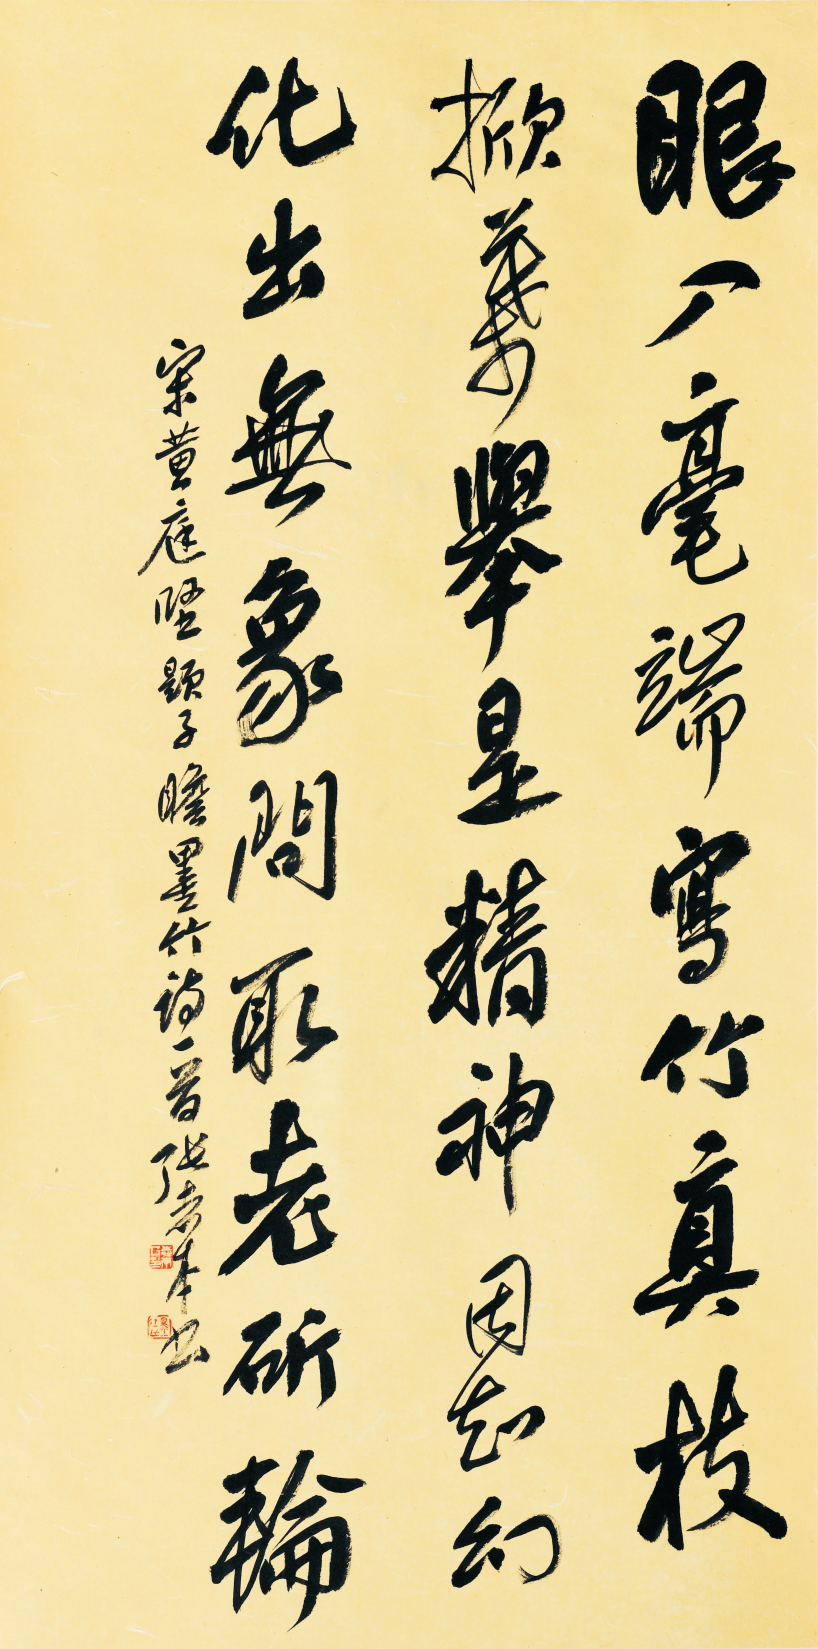 眼入毫端寫竹真枝
掀葉舉是精神因知幻
化出無象問取老斫輪
宋黄庭堅題子瞻墨竹詩一首張志本书